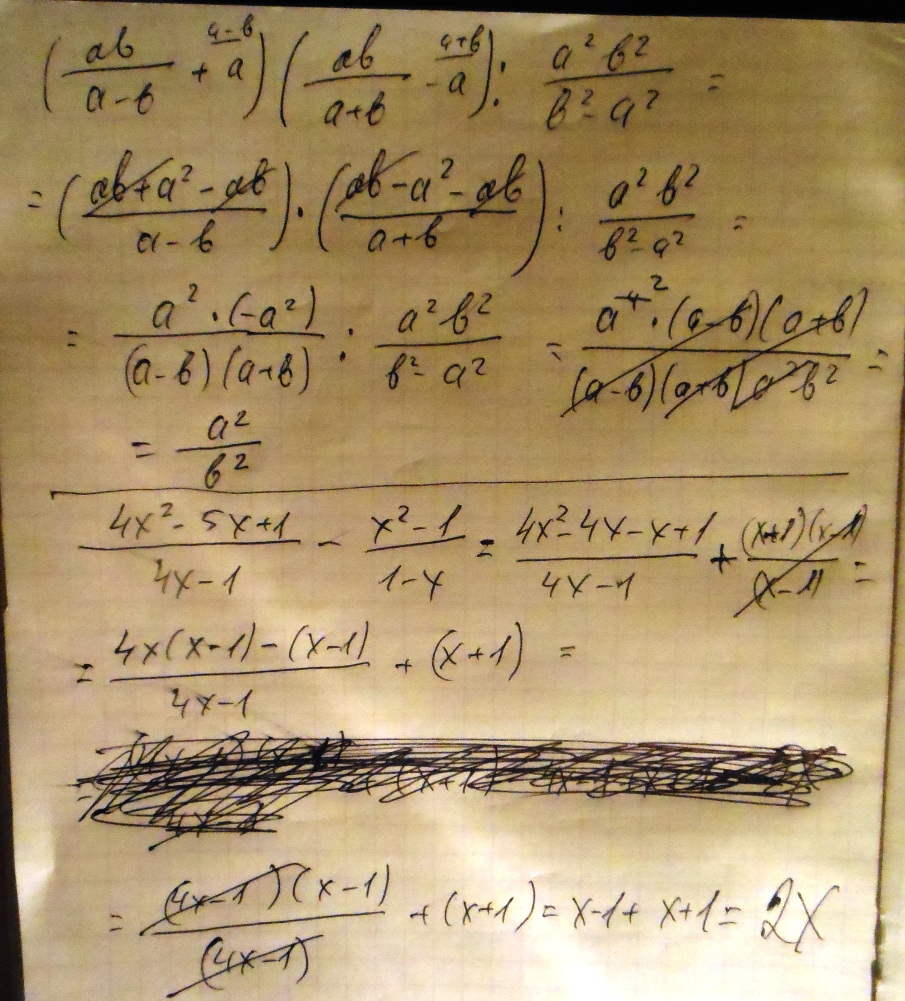 (ab/(a-b) + a^(a-b)) (ab/(a+b) - a^(a+b)) : a²b²/(b²-a²) =
= ((ab+a²-ab)/(a-b)) · ((ab-a²-ab)/(a+b)) : a²b²/(b²-a²) =
= a²·(-a²)/((a-b)(a+b)) : a²b²/(b²-a²) = a⁴²·(a-b)(a+b)/((a-b)(a+b)a²b²) =
= a²/b²
(4x²-5x+1)/(4x-1) - (x²-1)/(1-x) = (4x²-4x-x+1)/(4x-1) + (x+1)(x-1)/(x-1) =
= (4x(x-1)-(x-1))/(4x-1) + (x+1) =
= (4x-1)(x-1)/(4x-1) + (x+1) = x-1+x+1 = 2x